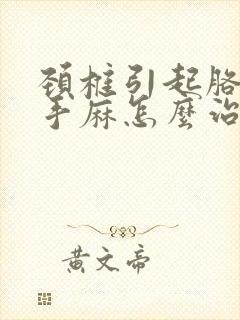 頚椎引起胳
手麻怎麼治
黃文帝